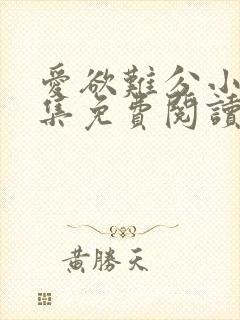 愛欲難分小
集免費閱讀
黃勝天